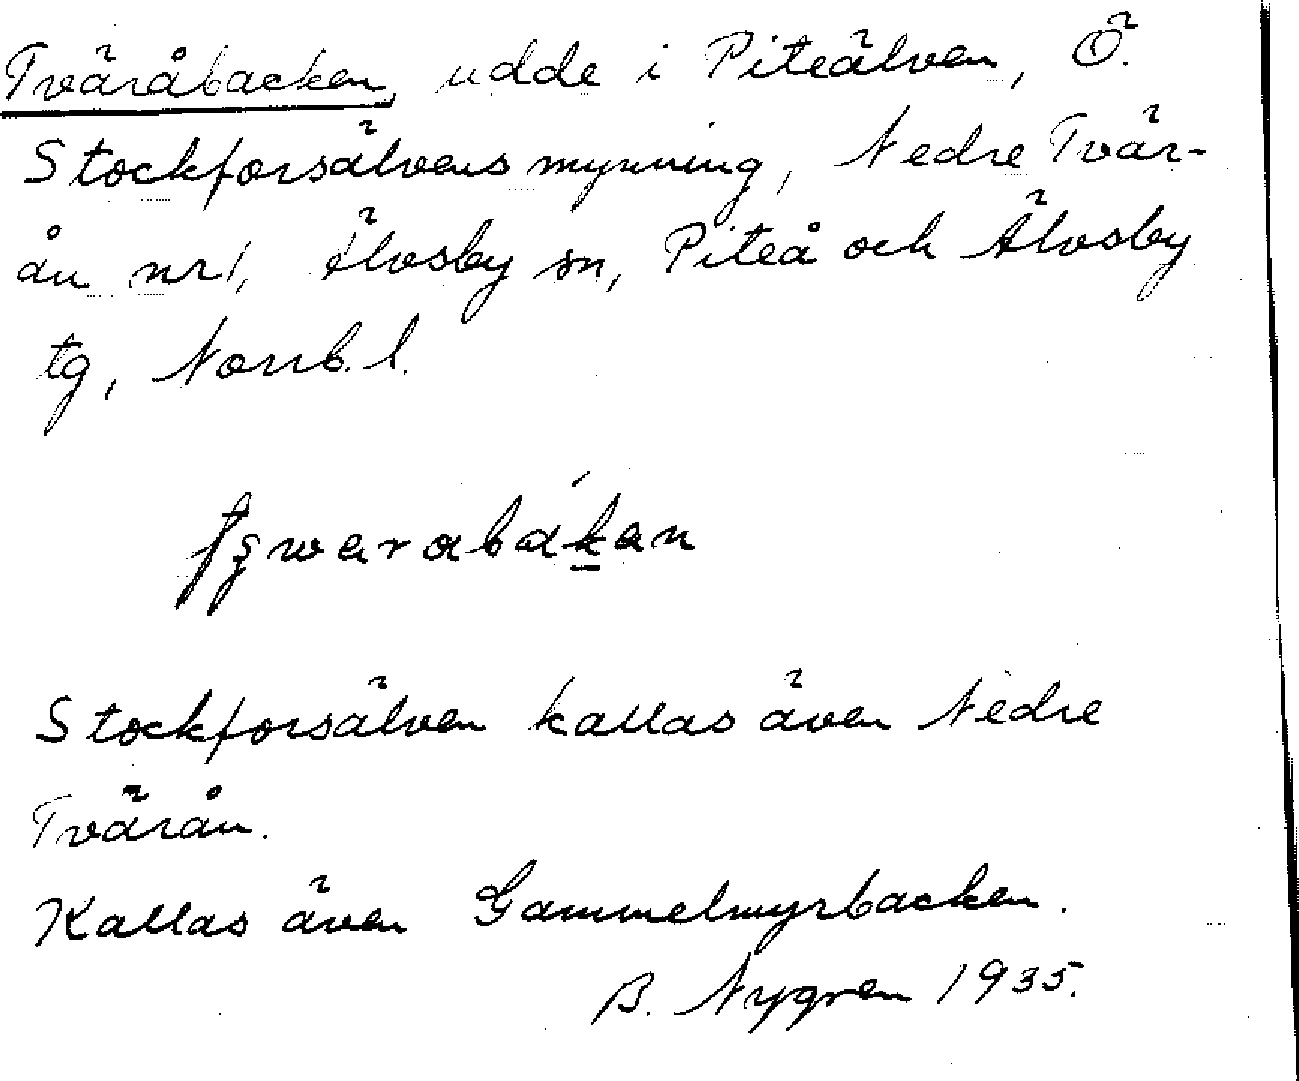 Tväråbacken, udde i Piteälven, Ö.
Stockforsälvens mynning, Nedre Tvär-
ån nr 1, Älvsby sn, Piteå och Älvsby
tg, Norrb. l.
Stockforsälven kallas även Nedre
Tvärån.
Kallas även Gammelmyrbacken.
B. Nygren 1935.